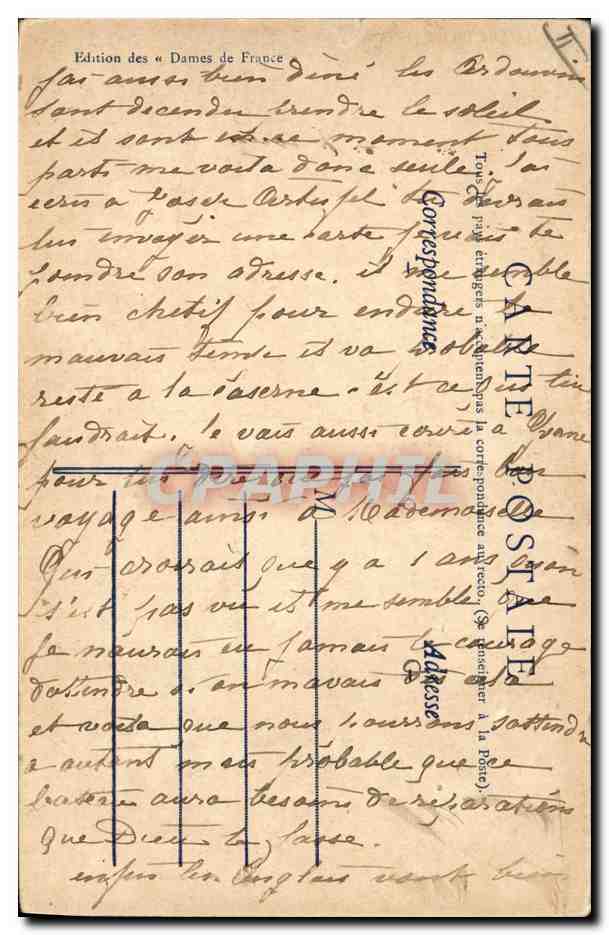 II
Edition des « Dames de France
CARTE POSTALE
Tous les pays étrangers n'acceptent pas la correspondance au recto. (Se renseigner à la Poste).
Correspondance
Adresse
M
CPAPHIL
jai aussi bien diné les Ardouin
sont decendu prendre le soleil
et il sont en ce moment tous
parti me voila donc seule. J'ai
ecris a devrais
lui envoyer une carte je vais te
joindre son adresse. il me semble
bien chetif pour endurer le
mauvais temps il va
reste a la caserne. est ce qu'il lui
faudrait. Je vais aussi ecrire a Yvonne
pour lui pas fais bon
voyage ainsi a Mademoiselle
Qui croirais que y a 1 ans quon
s'est pas vu il me semble que
je naurais eu jamais le courage
dattendre si on mavais dit cela
et voila que nous pourrons sattendre
a autant mais probable que ce
aura besoins de réparations
que Dieu le fasse.
enfin les Anglais vont bien